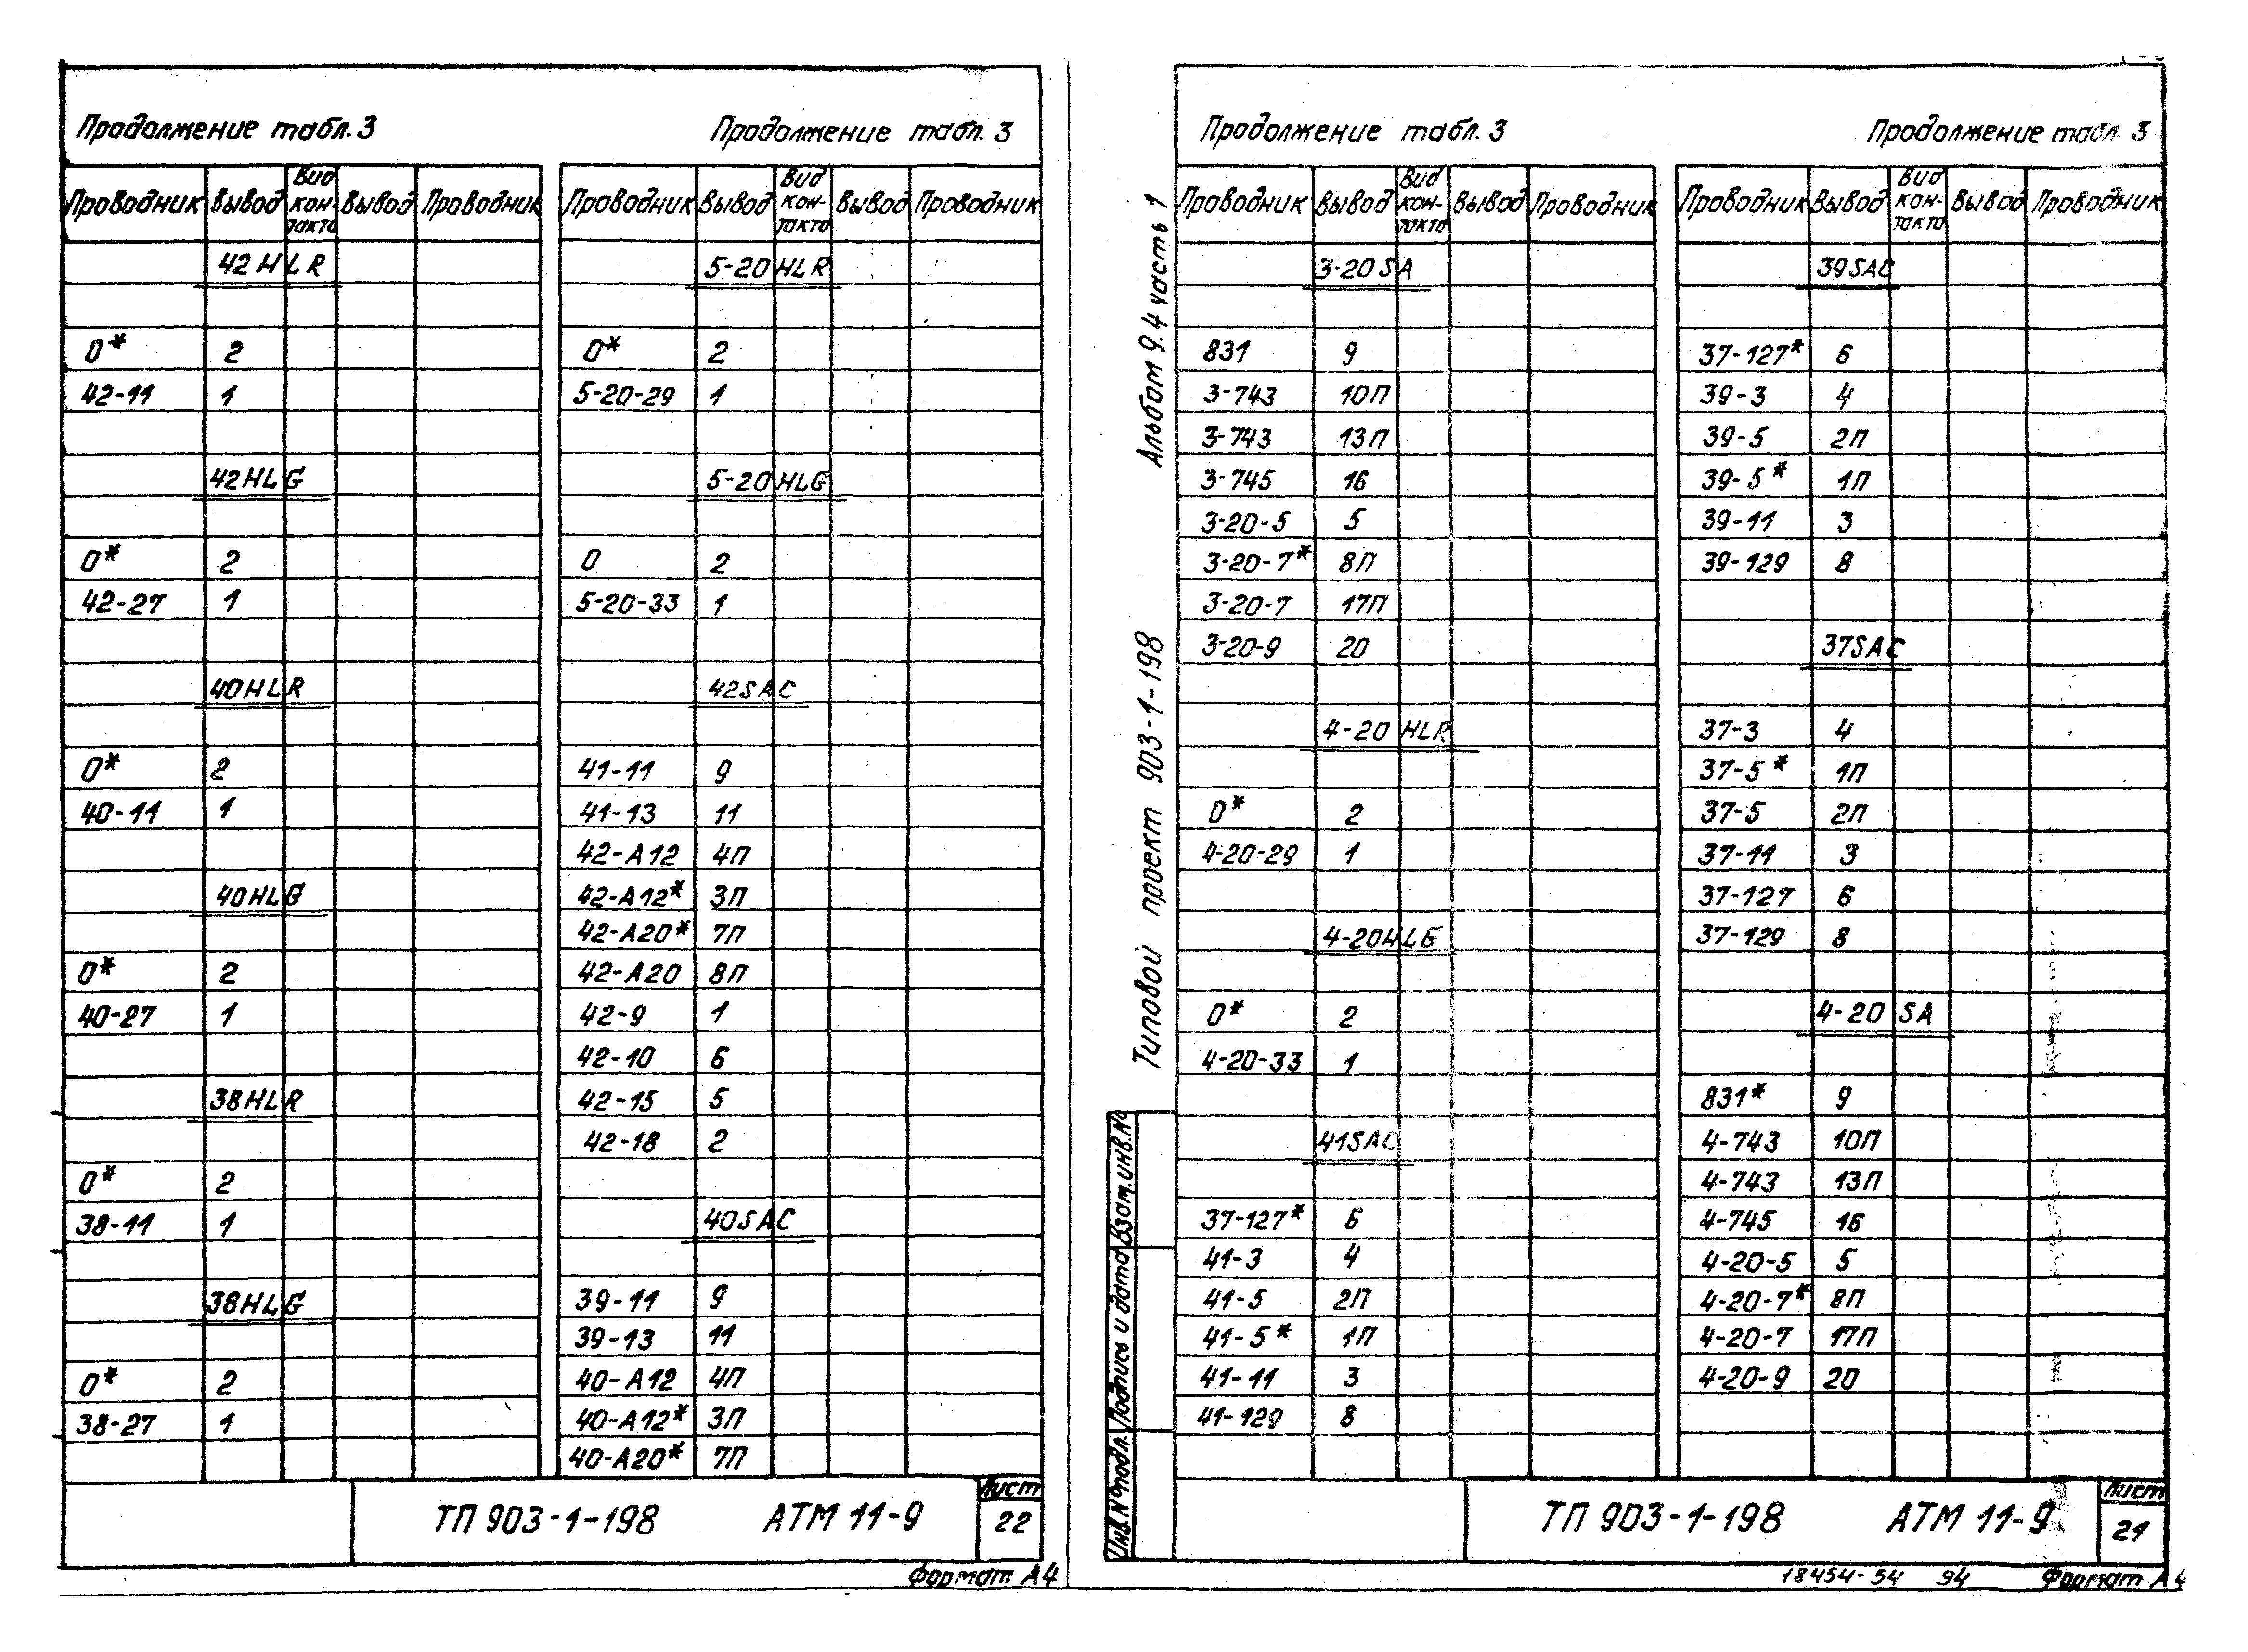 Продолжение табл. 3
Проводник Вывод Вид кон-такта Вывод Проводник
42HLR
0* 2
42-11 1
42HLG
0* 2
42-27 1
40HLR
0* 2
40-11 1
40HLG
0* 2
40-27 1
38HLR
0* 2
38-11 1
38HLG
0* 2
38-27 1
Продолжение табл. 3
Проводник Вывод Вид кон-такта Вывод Проводник
5-20HLR
0* 2
5-20-29 1
5-20HLG
0 2
5-20-33 1
42SAC
41-11 9
41-13 11
42-А12 4П
42-А12* 3П
42-А20* 7П
42-А20 8П
42-9 1
42-10 6
42-15 5
42-18 2
40SAC
39-11 9
39-13 11
40-А12 4П
40-А12* 3П
40-А20* 7П
ТП 903-1-198 АТМ 11-9
Лист
22
Формат А4
Альбом 9.4 часть 1
Типовой проект 903-1-198
Взам. инв. №
Подпись и дата
Инв. № подл.
Продолжение табл. 3
Проводник Вывод Вид кон-такта Вывод Проводник
3-20SA
831 9
3-743 10П
3-743 13П
3-745 16
3-20-5 5
3-20-7* 8П
3-20-7 17П
3-20-9 20
4-20 HLR
0* 2
4-20-29 1
4-20HLG
0* 2
4-20-33 1
41SAC
37-127* 6
41-3 4
41-5 2П
41-5* 1П
41-11 3
41-129 8
Продолжение табл. 3
Проводник Вывод Вид кон-такта Вывод Проводник
39SAC
37-127* 6
39-3 4
39-5 2П
39-5* 1П
39-11 3
39-129 8
37SAC
37-3 4
37-5* 1П
37-5 2П
37-11 3
37-127 6
37-129 8
4-20 SA
831* 9
4-743 10П
4-743 13П
4-745 16
4-20-5 5
4-20-7* 8П
4-20-7 17П
4-20-9 20
ТП 903-1-198 АТМ 11-9
Лист
21
18454-54 94 Формат А4